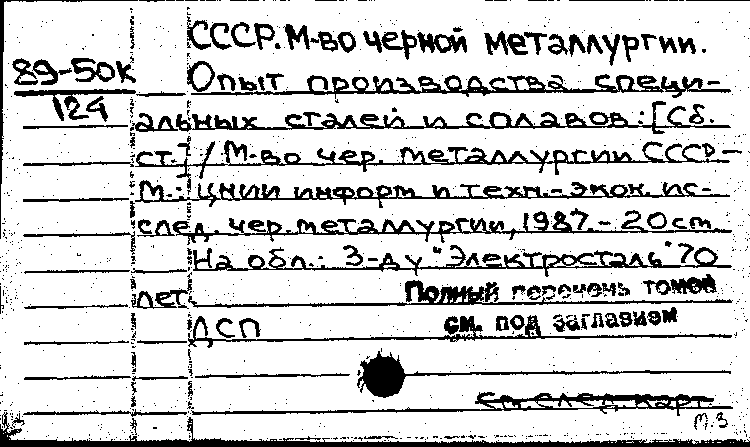 СССР. М-во черной металлургии.
89-50к
124
Опыт производства специ-
альных сталей и сплавов: [Сб.
ст.] / М-во чер. металлургии СССР. -
М.: ЦНИИ информ и техн.-экон. ис-
след. чер. металлургии, 1987. - 20 см
На обл.: З-ду "Электросталь" 70
лет.
Полный перечень томов
ДСП
см. под заглавием
см. след. карт
м.3